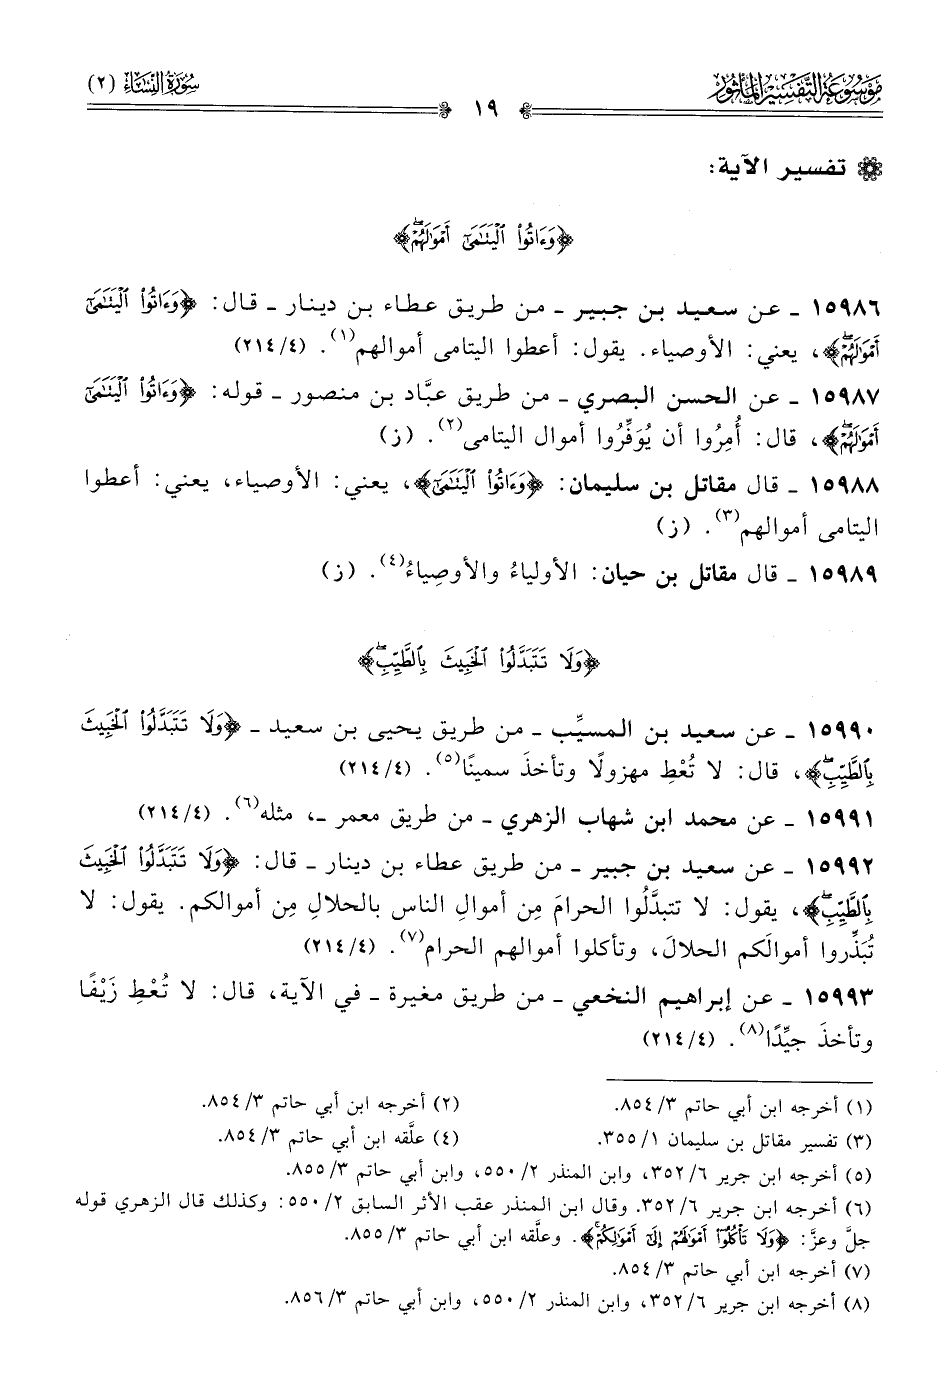 مَوْسُوعَةُ التَّفْسِيرِ المَأْثُورِ
سُورَةُ النِّسَاءِ (٢)
١٩
تفسير الآية:
﴿وَءَاتُوا۟ ٱلْيَتَـٰمَىٰٓ أَمْوَٰلَهُمْۖ﴾
١٥٩٨٦ ـ عن سعيد بن جبير ـ من طريق عطاء بن دينار ـ قال: ﴿وَءَاتُوا۟ ٱلْيَتَـٰمَىٰٓ
أَمْوَٰلَهُمْۖ﴾، يعني: الأوصياء. يقول: أعطوا اليتامى أموالهم(١). (٢١٤/٤)
١٥٩٨٧ ـ عن الحسن البصري ـ من طريق عبَّاد بن منصور ـ قوله: ﴿وَءَاتُوا۟ ٱلْيَتَـٰمَىٰٓ
أَمْوَٰلَهُمْۖ﴾، قال: أُمِرُوا أن يُوَفِّرُوا أموال اليتامى(٢). (ز)
١٥٩٨٨ ـ قال مقاتل بن سليمان: ﴿وَءَاتُوا۟ ٱلْيَتَـٰمَىٰٓ﴾، يعني: الأوصياء، يعني: أعطوا
اليتامى أموالهم(٣). (ز)
١٥٩٨٩ ـ قال مقاتل بن حيان: الأولياءُ والأوصِياءُ(٤). (ز)
﴿وَلَا تَتَبَدَّلُوا۟ ٱلْخَبِيثَ بِٱلطَّيِّبِۖ﴾
١٥٩٩٠ ـ عن سعيد بن المسيِّب ـ من طريق يحيى بن سعيد ـ ﴿وَلَا تَتَبَدَّلُوا۟ ٱلْخَبِيثَ
بِٱلطَّيِّبِۖ﴾، قال: لا تُعْطِ مهزولًا وتأخذَ سمينًا(٥). (٢١٤/٤)
١٥٩٩١ ـ عن محمد ابن شهاب الزهري ـ من طريق معمر ـ، مثله(٦). (٢١٤/٤)
١٥٩٩٢ ـ عن سعيد بن جبير ـ من طريق عطاء بن دينار ـ قال: ﴿وَلَا تَتَبَدَّلُوا۟ ٱلْخَبِيثَ
بِٱلطَّيِّبِۖ﴾، يقول: لا تتبدَّلُوا الحرامَ مِن أموالِ الناس بالحلالِ مِن أموالكم. يقول: لا
تُبَذِّروا أموالَكم الحلالَ، وتأكلوا أموالهم الحرام(٧). (٢١٤/٤)
١٥٩٩٣ ـ عن إبراهيم النخعي ـ من طريق مغيرة ـ في الآية، قال: لا تُعْطِ زَيْفًا
وتأخذَ جيِّدًا(٨). (٢١٤/٤)
(١) أخرجه ابن أبي حاتم ٨٥٤/٣.
(٢) أخرجه ابن أبي حاتم ٨٥٤/٣.
(٣) تفسير مقاتل بن سليمان ٣٥٥/١.
(٤) علَّقه ابن أبي حاتم ٨٥٤/٣.
(٥) أخرجه ابن جرير ٣٥٢/٦، وابن المنذر ٥٥٠/٢، وابن أبي حاتم ٨٥٥/٣.
(٦) أخرجه ابن جرير ٣٥٢/٦. وقال ابن المنذر عقب الأثر السابق ٥٥٠/٢: وكذلك قال الزهري قوله
جلَّ وعزَّ: ﴿وَلَا تَأْكُلُوٓا۟ أَمْوَٰلَهُمْ إِلَىٰٓ أَمْوَٰلِكُمْۚ﴾. وعلَّقه ابن أبي حاتم ٨٥٥/٣.
(٧) أخرجه ابن أبي حاتم ٨٥٤/٣.
(٨) أخرجه ابن جرير ٣٥٢/٦، وابن المنذر ٥٥٠/٢، وابن أبي حاتم ٨٥٦/٣.